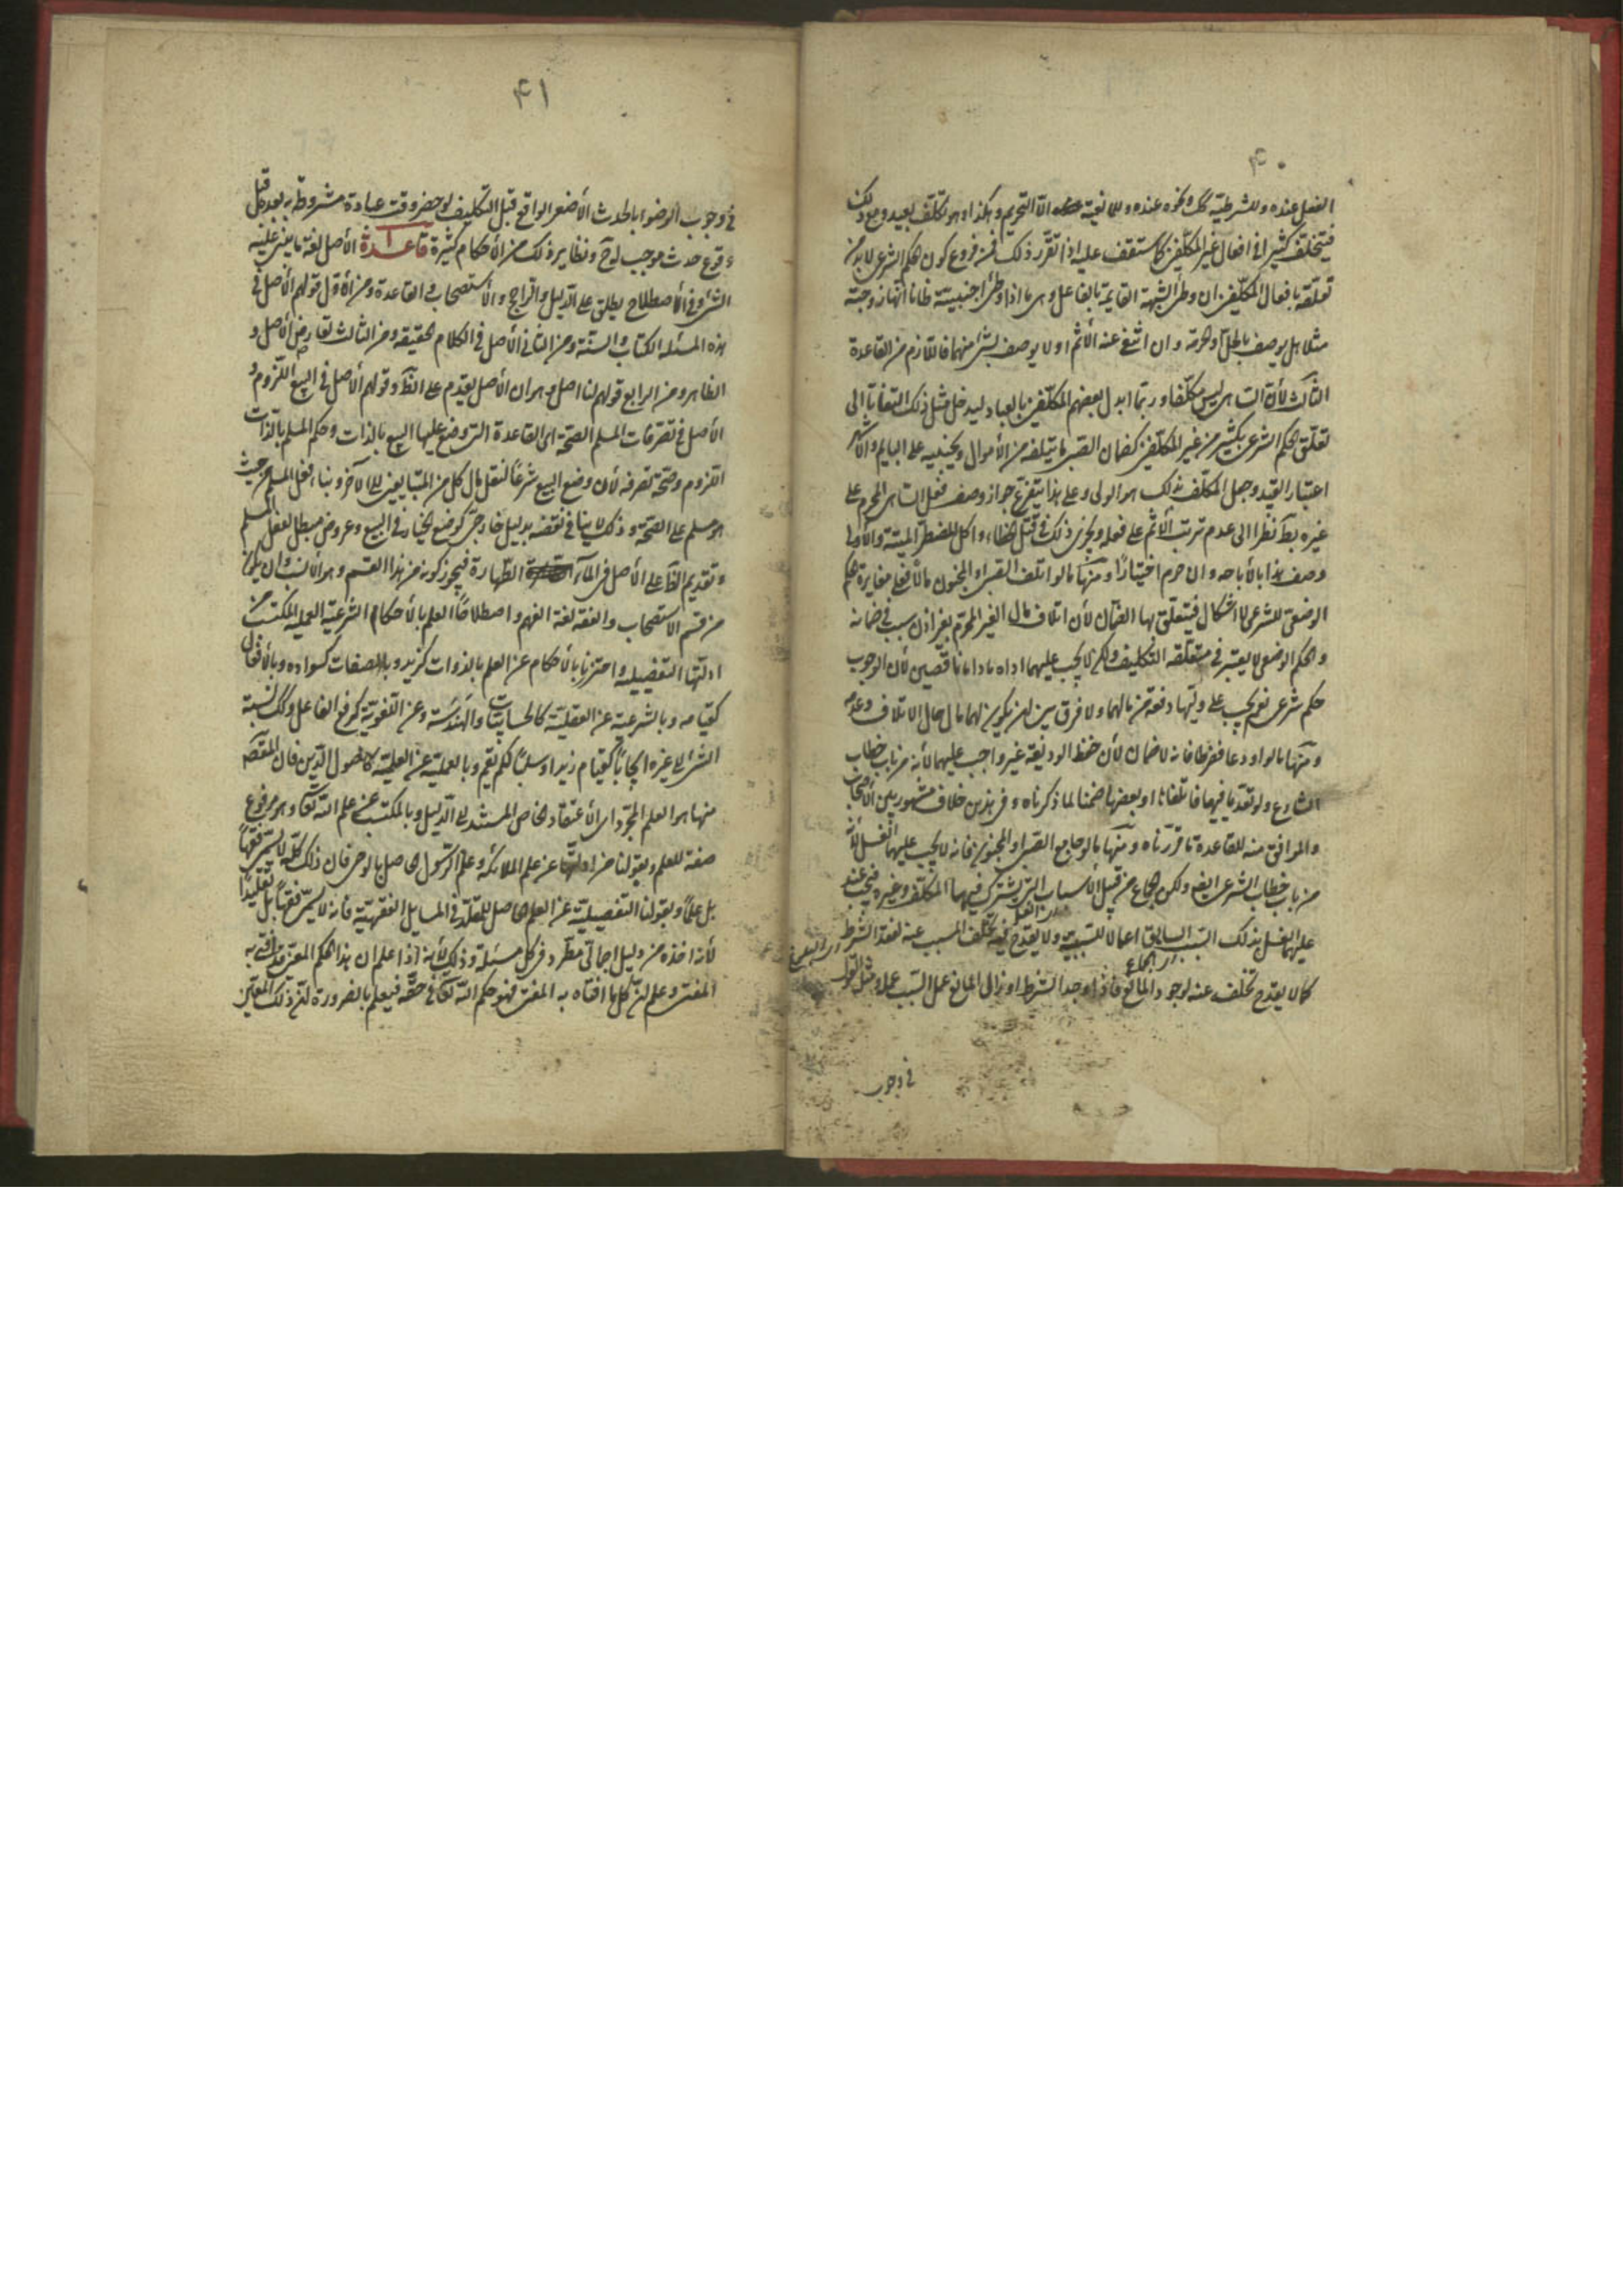 ۴۰
الفعل عنده وللشرطية كك ونحوه عنده وللمانعية الا التحريم وهكذا وهو تكلف بعيد ومع ذلك
فيتخلف كثيرا في افعال غير المكلفين كما ستقف عليه اذا تقرر ذلك فمن فروع كون الحكم الشرعي لا بد من
تعلقه بافعال المكلفين ان وطئ الشبهة القايمة بالفاعل وهي ما اذا وطئ اجنبية ظانا انها زوجته
مثلا هل يوصف بالحل او الحرمة وان انتفى عنه الاثم او لا يوصف بشئ منهما فاللازم من القاعدة
الثالث لأن الساهي ليس مكلفا وربما ابدل بعضهم المكلفين بالعباد ليدخل مثل ذلك التفاتا الى
تعلق الحكم الشرعي بكثير من غير المكلفين كضمان الصبي ما يتلفه من الأموال ويجنيه على البهايم والأكثر
اعتبار القيد وجعل المكلف بذلك هو الولي وعلى هذا يتفرع جواز وصف فعل الساهي المحرم على
غيره بك نظرا الى عدم ترتب الاثم على فعله ويجري ذلك في قتل الخطاء واكل المضطر الميتة والأولى
وصف هذا بالأباحه وان حرم اختيارا ومنها ما لو اتلف الصبي او المجنون مالا فعلى مغايرة الحكم
الوضعي للشرعي لا اشكال فيتعلق بها الضمان لأن اتلاف مال الغير المحترم بغير اذن سبب في ضمانه
والحكم الوضعي لا يعتبر في متعلقه التكليف ولكن لا يجب عليهما اداه ما داما ناقصين لأن الوجوب
حكم شرعي نعم يجب على وليها دفعه من مالهما ولا فرق بين ان يكون لهما مال حال الاتلاف وعدمه
ومنها ما لو اودعا ففرطا فانه لا ضمان لأن حفظ الوديعة غير واجب عليهما لأنه من باب خطاب
الشارع ولو تعديا فيهما فاتلفاها او بعضها ضمنا لما ذكرناه وفي هذين خلاف مشهور بين الأصحاب
والموافق منه للقاعدة ما قررناه ومنها ما لو جامع الصبي او المجنون فانه لا يجب عليهما الغسل لأنه
من باب خطاب الشرع ايضا ولكن الجماع من قبيل الأسباب التي يشترك فيها المكلف وغيره فيجب عند
عليهما الغسل بذلك السبب السابق اعمالا للسببية ولا يقدح فيه تخلف المسبب عنه لفقد الشرط
كما لا يقدح تخلف عنه لوجود المانع فاذا وجد الشرط او زال المانع عمل السبب عمله ومثله القول
في وجوب
۴۱
في وجوب الوضوء بالحدث الأصغر الواقع قبل التكليف لو حضر وقت عبادة مشروطة به بعده قبل
وقوع حدث موجب اخر ونظاير ذلك من الأحكام كثيرة قاعدة الأصل لغة ما يبنى عليه
الشئ وفي الأصطلاح يطلق على الدليل والراجح والاستصحاب والقاعدة ومن الأول قولهم الأصل في
هذه المسئله الكتاب والسنة ومن الثاني الأصل في الكلام الحقيقة ومن الثالث تعارض الأصل و
الظاهر ومن الرابع قولهم لنا اصل وهو ان الأصل يقدم على الظ وقولهم الأصل في البيع اللزوم و
الأصل في تصرفات المسلم الصحة اى القاعدة التي وضع عليها البيع بالذات وحكم المسلم بالذات
اللزوم وصحة تصرفه لأن وضع البيع شرعا لنقل مال كل من المتبايعين الى الآخر وبناء فعل المسلم من حيث
هو مسلم على الصحة وذلك لا ينافي نقضه بدليل خارجي كوضع الخيار في البيع وعروض مبطل لفعل المسلم
وتقديم الظ على الأصل في الماء الطهارة فيجوز كونه من هذا القسم وهو الأنسب وان يكون
من قسم الاستصحاب والفقه لغة الفهم واصطلاحا العلم بالأحكام الشرعية العمليه المكتسب من
ادلتها التفصيليه واحترزنا بالأحكام عن العلم بالذوات كزيد وبالصفات كسواده وبالأفعال
كقيامه وبالشرعية عن العقلية كالحسابيات والهندسة وعن اللغوية كرفع الفاعل وكك نسبة
الشئ الى غيره ايجابا كقيام زيد او سلبا كلم يقم وبالعملية عن العلمية كاصول الدين فان المقصد
منها هو العلم المجرد اى الأعتقاد الخاص المستند الى الدليل وبالمكتسب عن علم الله تعالى وهو مرفوع
صفة للعلم وبقولنا من ادلتها عن علم الملائكة وعلم الرسول الحاصل بالوحي فان ذلك كله لا يسمى فقها
بل علما وبقولنا التفصيلية عن العلم الحاصل للمقلد في المسايل الفقهية فانه لا يسمى فقها بل تقليدا
لأنه اخذه من دليل اجمالي مطرد في كل مسئلة وذلك لأنه اذا علم ان هذا الحكم المعين قد افتى به
المفتي وعلم ان كل ما افتاه به المفتي فهو حكم الله تعالى في حقه فيعلم بالضرورة ان ذلك المعين